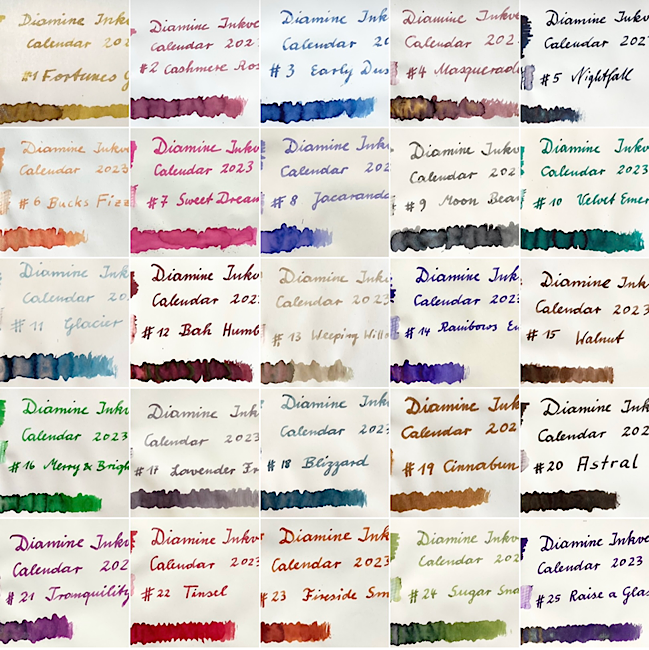 Diamine Inkve
Calendar 202
#1 Fortunes G
Diamine Inkve
Calendar 202
#2 Cashmere Ros
Diamine Inkv
Calendar 202
#3 Early Dus
Diamine Inkve
Calendar 202
#4 Masquerade
Diamine Inkve
Calendar 202
#5 Nightfall
Diamine Inkv
Calendar 2023
#6 Bucks Fizz
Diamine Inkv
Calendar 2023
#7 Sweet Dream
Diamine Inkv
Calendar 202
#8 Jacaranda
Diamine Inkv
Calendar 202
#9 Moon Bea
Diamine Inkv
Calendar 2023
#10 Velvet Emer
Diamine Ink
Calendar 20
#11 Glacier
Diamine Inkv
Calendar 202
#12 Bah Humb
Diamine Inkv
Calendar 2023
#13 Weeping Willo
Diamine Inkv
Calendar 202
#14 Rainbows En
Diamine Inkv
Calendar 2023
#15 Walnut
Diamine Inkv
Calendar 2023
#16 Merry & Brigh
Diamine Ink
Calendar 2023
#17 Lavender Fr
Diamine Inkv
Calendar 2023
#18 Blizzard
Diamine Ink
Calendar 202
#19 Cinnabun
Diamine Inkv
Calendar 2023
#20 Astral
Diamine Inkv
Calendar 202
#21 Tranquility
Diamine Inkve
Calendar 2023
#22 Tinsel
Diamine Ink
Calendar 2023
#23 Fireside Sn
Diamine Inkv
Calendar 202
#24 Sugar Sna
Diamine Inkve
Calendar 2023
#25 Raise a Glas